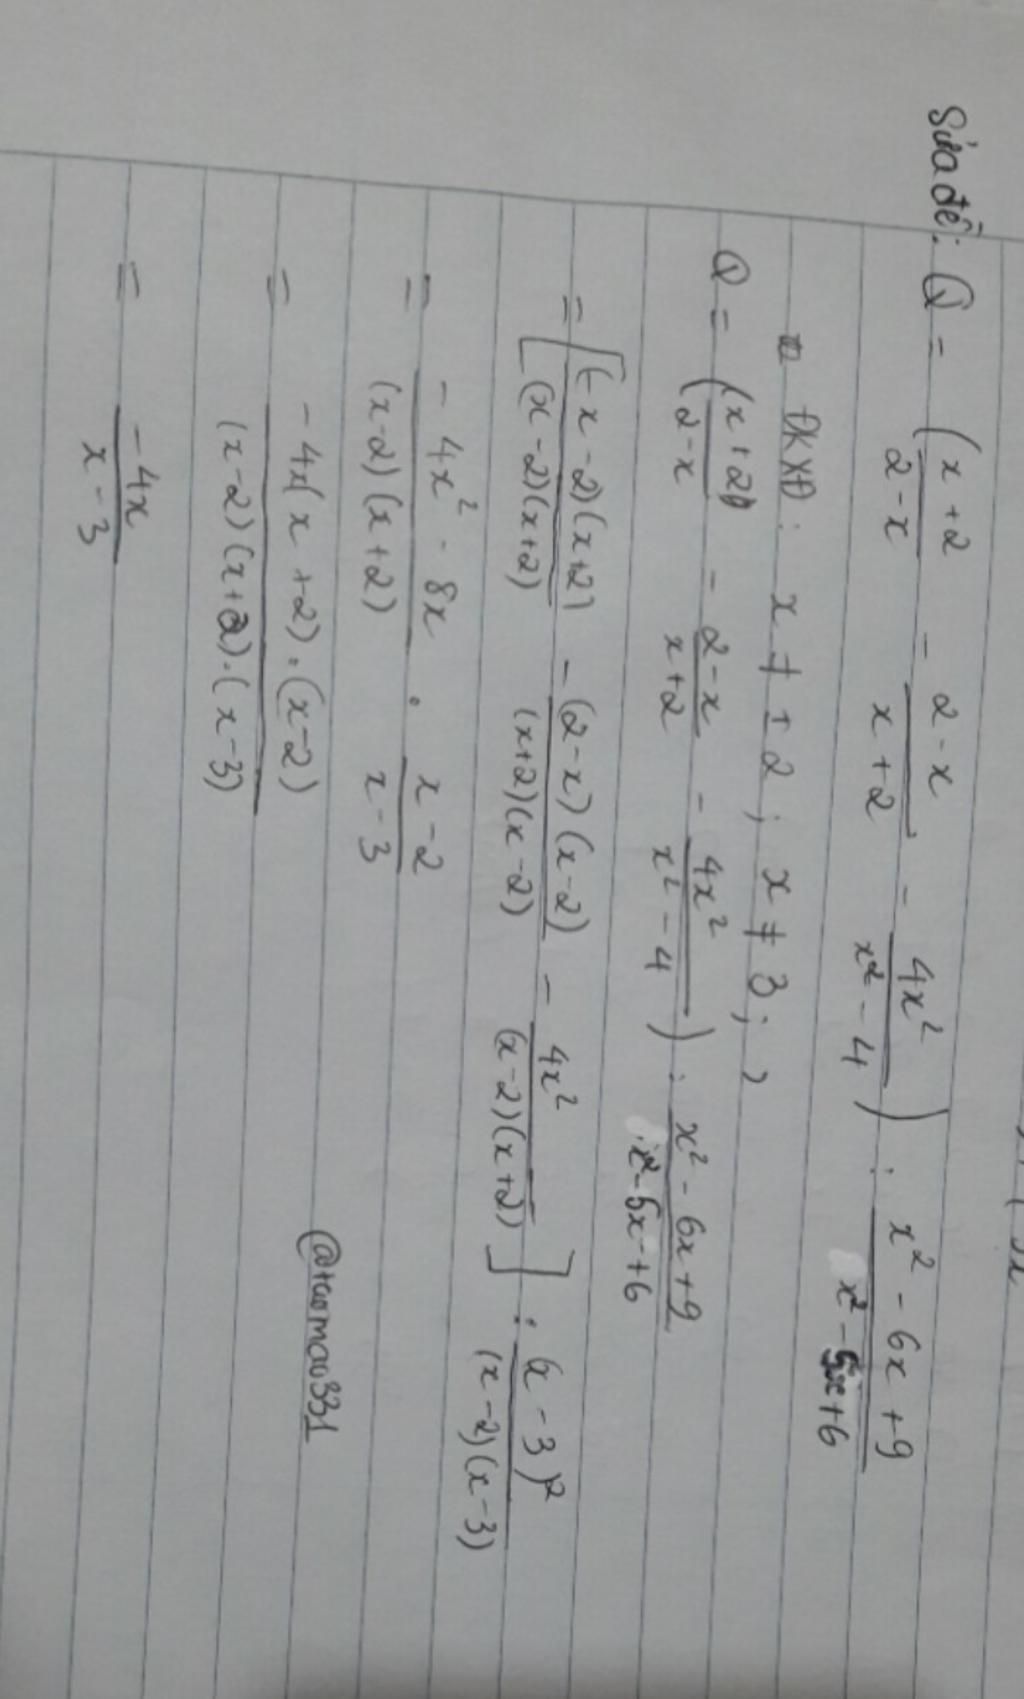 Sửa đề: Q = (x+2/2-x - 2-x/x+2 - 4x²/x²-4) : x²-6x+9/x²-5x+6
ĐKXĐ: x ≠ ±2; x ≠ 3;
Q = (x+2/2-x - 2-x/x+2 - 4x²/x²-4) : x²-6x+9/x²-5x+6
= [(-x-2)(x+2)/(x-2)(x+2) - (2-x)(x-2)/(x+2)(x-2) - 4x²/(x-2)(x+2)] : (x-3)²/(x-2)(x-3)
= -4x²-8x/(x-2)(x+2) . x-2/x-3
= -4x(x+2).(x-2)/(x-2)(x+2).(x-3)
@taomao331
= -4x/x-3